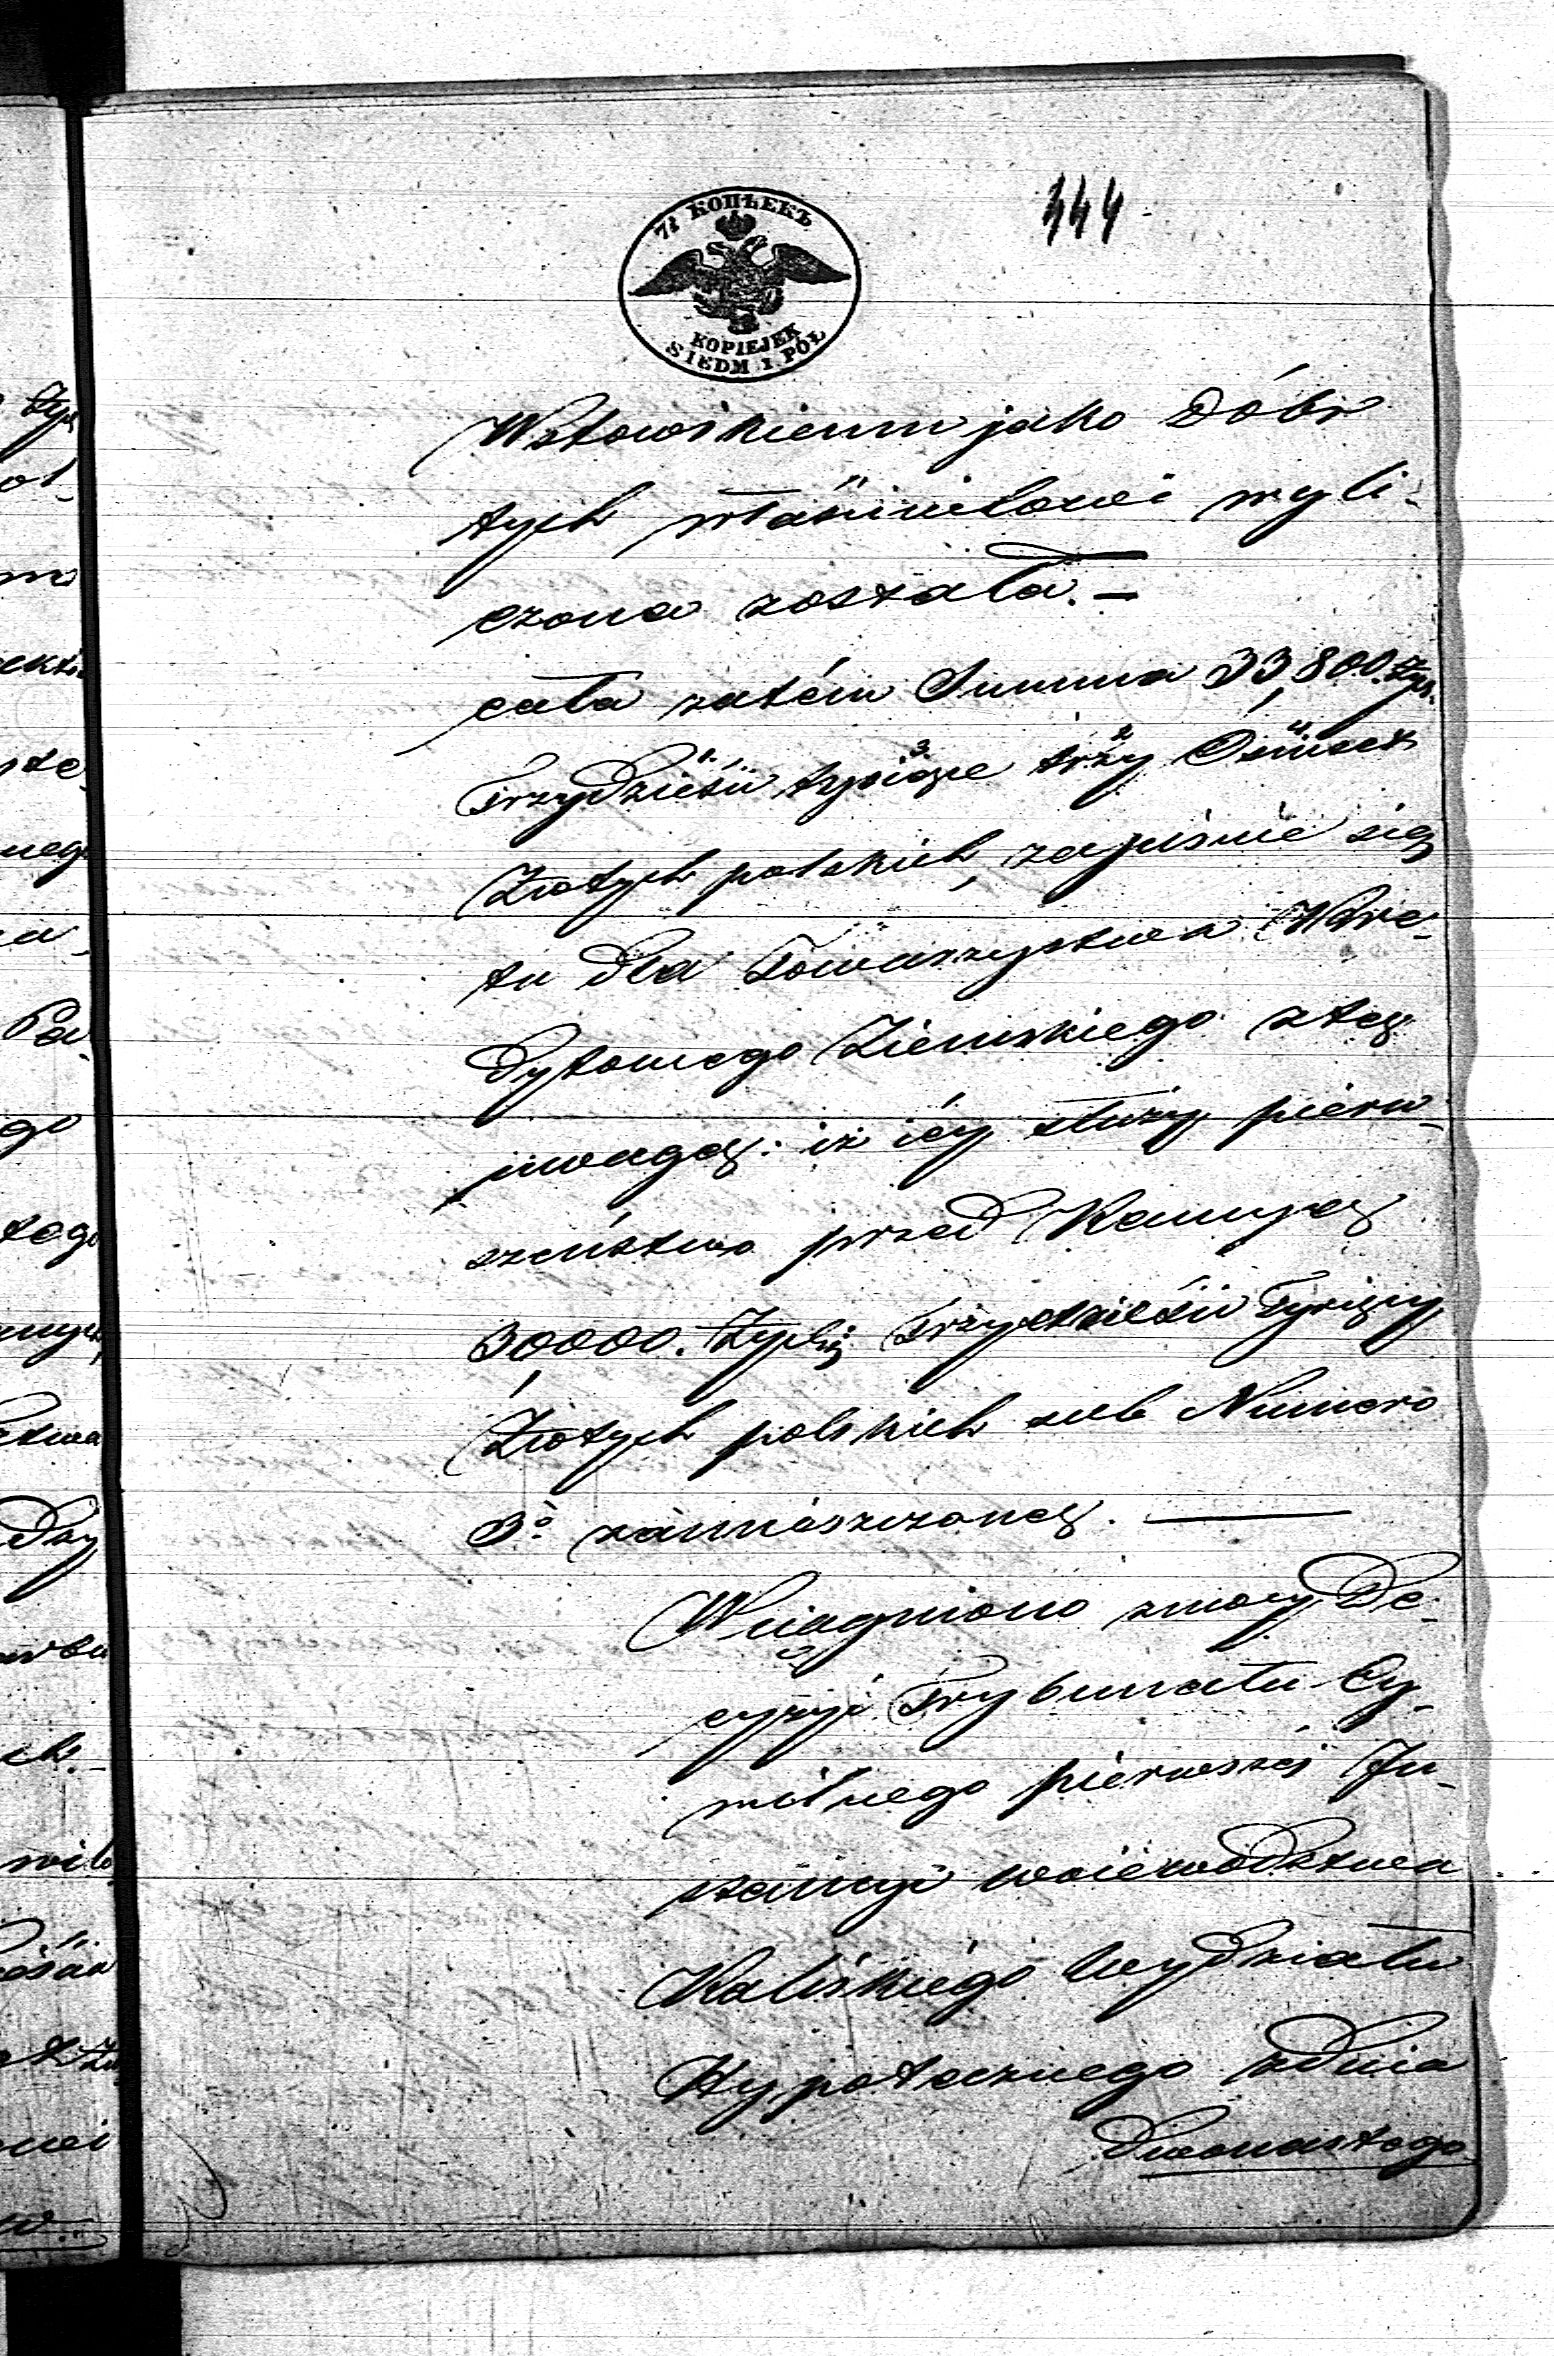 444
7½ КОПѢЕКЪ
KOPIEJEK
SIEDM I PÓŁ
jako Dóbr
tych właścicielowi wyli-
czona została.—
cała zatém Summa 33,800. Złp.
Trzydzieści tysiące trzy Ośmset
Złotych polskich, zapisuie się
tu dla Towarzystwa Kre-
dytowego Ziemskiego z tą
uwagą: iż iéy służy pierw-
szeństwo przed Kaucyą
30,000. Trzydzieści Tysięcy
Złotych polskich sub Numero
3o zamieszczoną.—
Wciągniono z mocy De-
cyzyi Trybunału Cy-
wilnego pierwszéj In-
stancyi woiewództwa
Kaliskiego Wydziału
Hypotecznego z dnia
Dwonastego